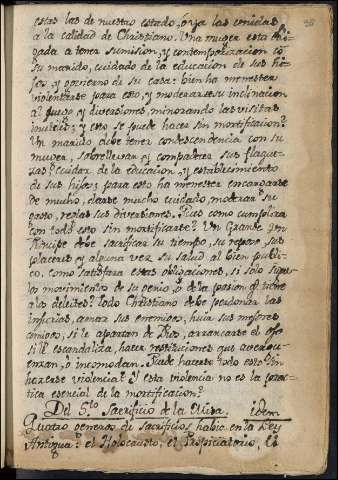 estas las de nuestro estado, o ya las comunes
a la calidad de Christiano. Una muger esta obli-
gada a tener sumision, y contemporizacion cō
su marido, cuidado de la educacion de sus hi-
jos, y govierno de su casa: bien ha menester
violentarse para esto, y moderarse su inclinacion
al juego y diversiones, minorando las visitas
inutiles; y esto se puede hacer sin mortificacion?
Un marido debe tener condescendencia con su
muger, sobrellevar, y compadecer sus flaque-
zas: cuidar de la educacion, y establecimiento
de sus hijos; y para esto ha menester encargarse
de mucho, darse mucho cuidado, moderar su
gasto, reglar sus diversiones. Pues como cumplira
con todo esto sin mortificarse? Un Grande, un
Principe debe sacrificar su tiempo, su reposo, sus
placeres y alguna vez su salud al bien publi-
co. como satisfara estas obligaciones, si solo sigue
los movimientos de su genio, o de la pasion q̄ tiene
a los deleites? Todo Christiano debe perdonar las
injurias, amar sus enemigos, huir sus mejores
amigos, si le apartan de Dios, arrancarse el ojo
si le escandaliza, hacer restituciones que averguen-
zan, o incomodan. Puede hacerse todo esto sin
hacerse violencia? Y esta violencia no es la prac-
tica esencial de la mortificacion?
Del Sto Sacrificio de la Misa. idem
Quatro generos de Sacrificios habia en la Ley
Antigua: el Holocausto, el Propiciatorio, el